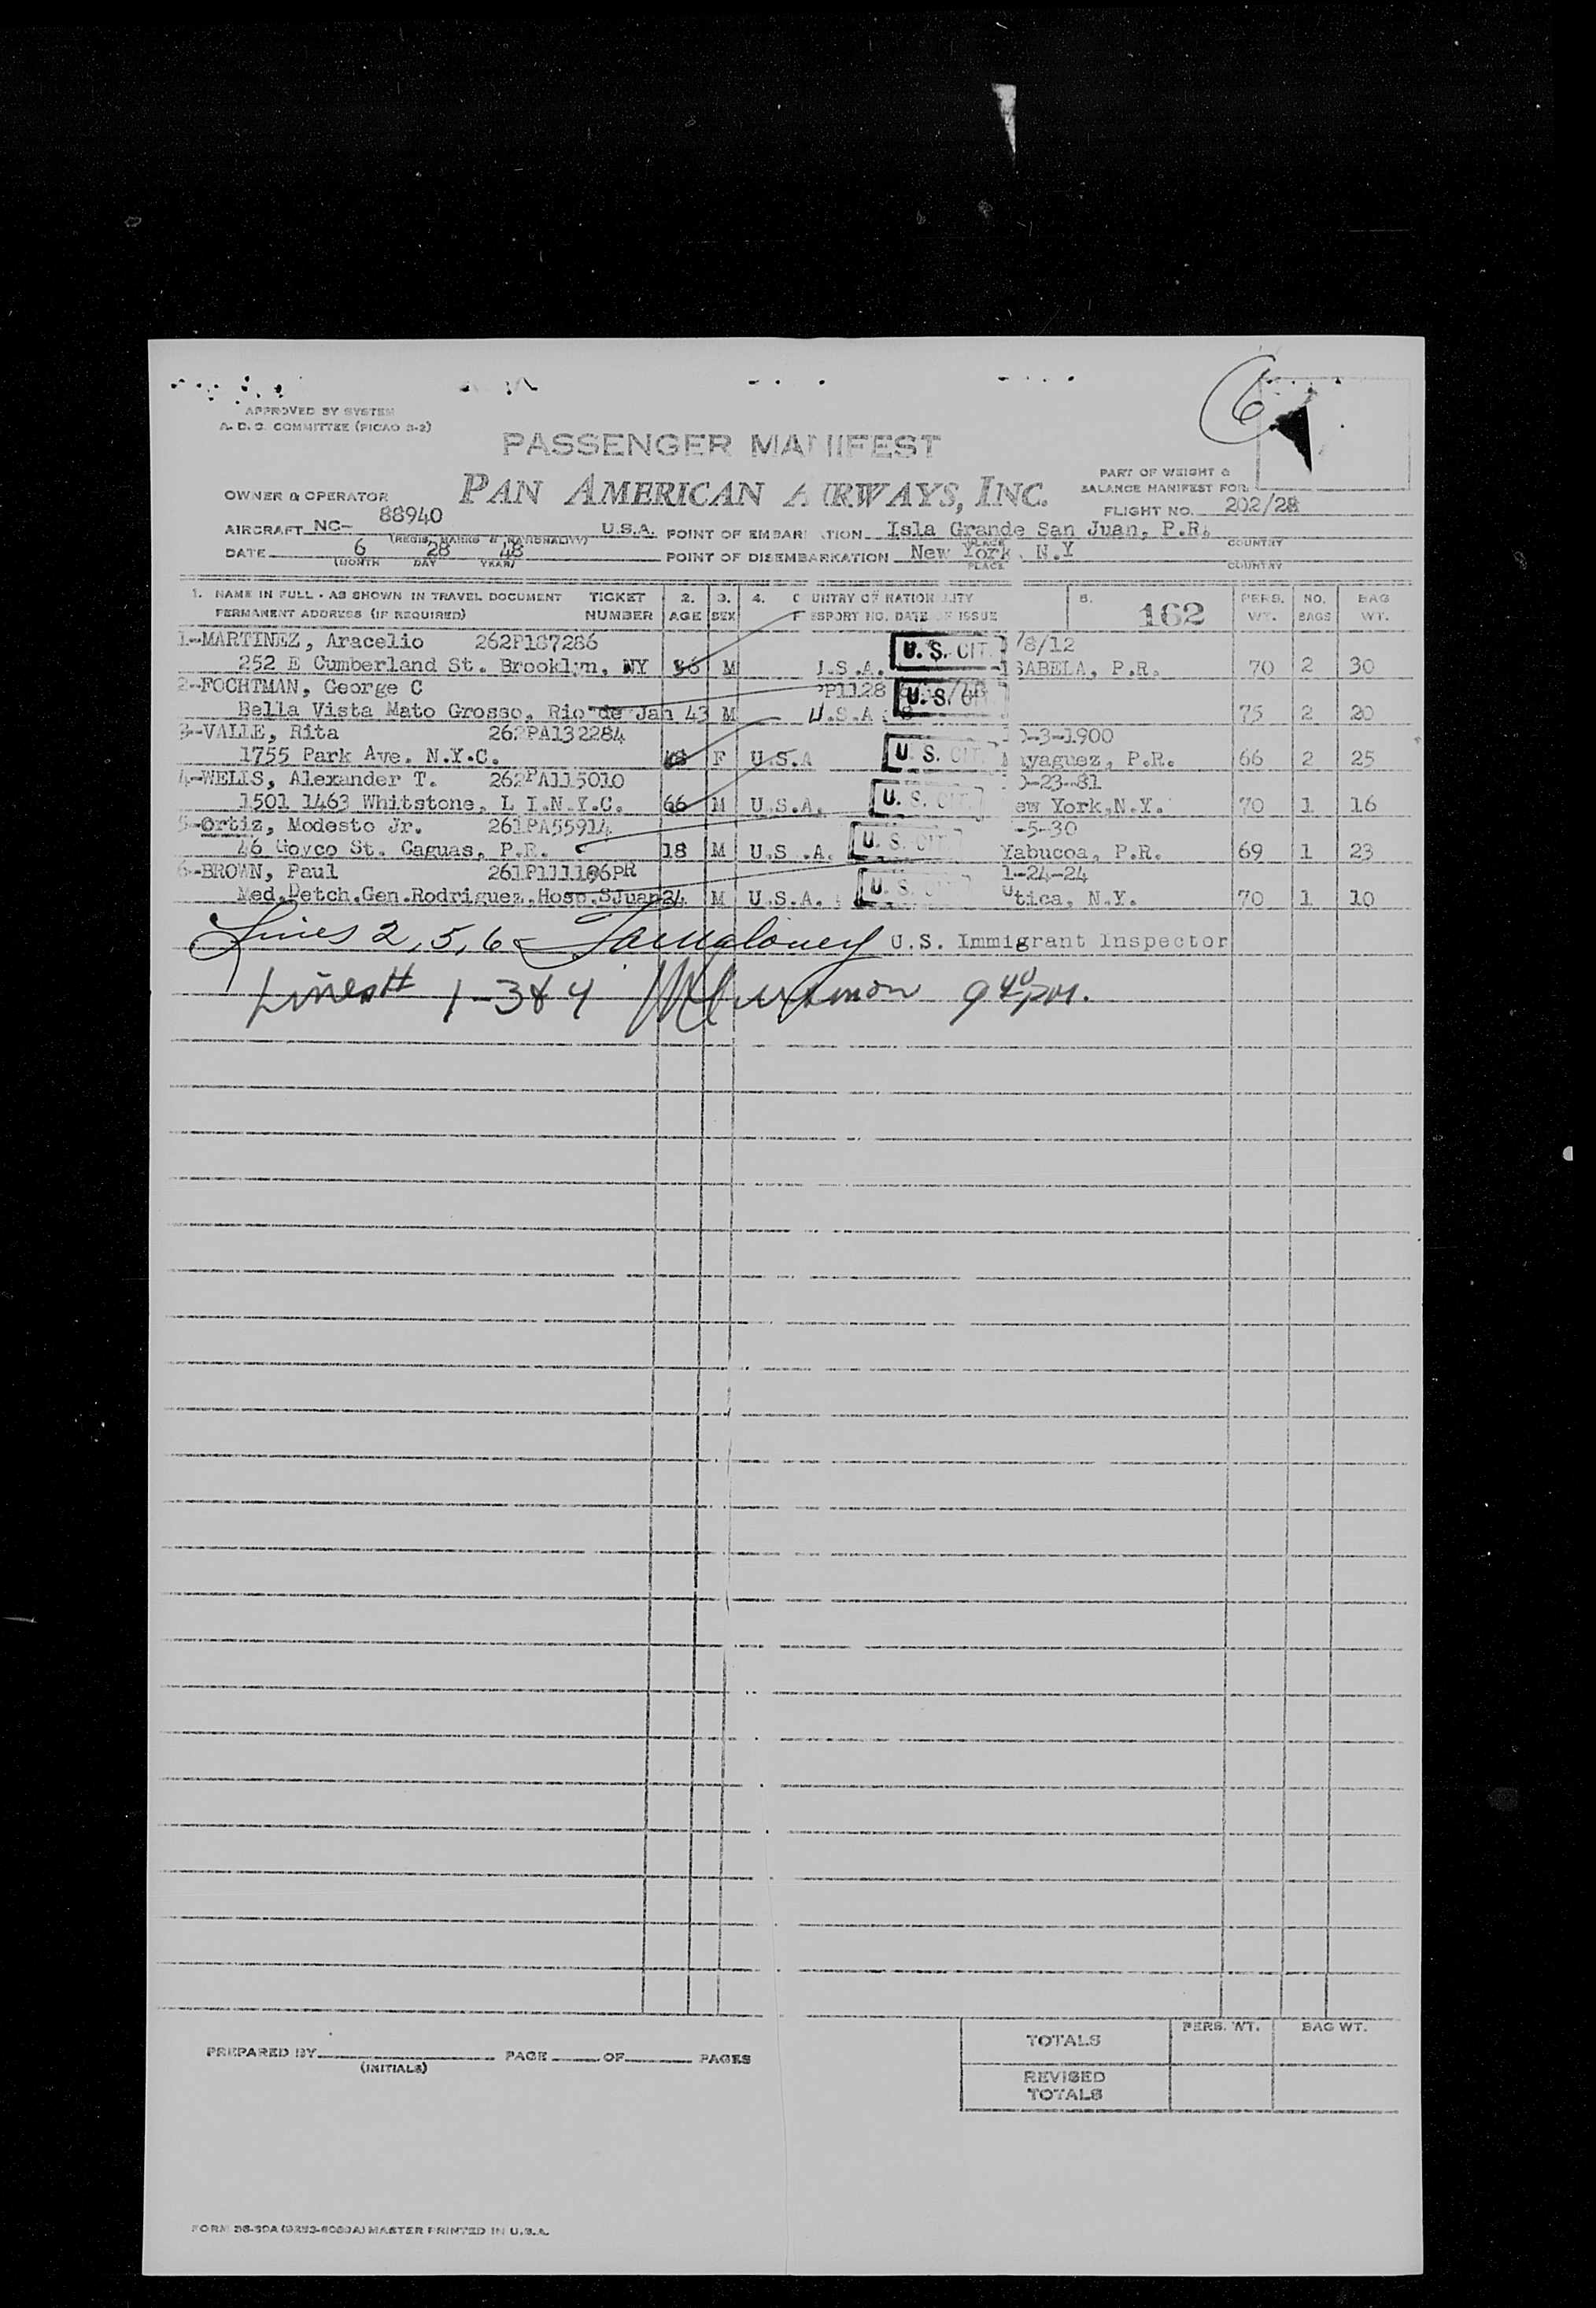 6
APPROVED BY SYSTEM
A. D. C. COMMITTEE (PICAO 3-2)
PASSENGER MANIFEST
PART OF WEIGHT &
BALANCE MANIFEST FOR
OWNER & OPERATOR PAN AMERICAN AIRWAYS, INC.
FLIGHT NO. 202/28
AIRCRAFT NC- 88940 U.S.A. POINT OF EMBARKATION Isla Grande San Juan, P.R.
(REGIS. MARKS & NATIONALITY) PLACE COUNTRY
DATE 6 28 48 POINT OF DISEMBARKATION New York, N.Y
(MONTH DAY YEAR) PLACE COUNTRY
1. NAME IN FULL - AS SHOWN IN TRAVEL DOCUMENT TICKET 2. 3. 4. COUNTRY OF NATIONALITY 5. 162 PERS. NO. BAG
PERMANENT ADDRESS (IF REQUIRED) NUMBER AGE SEX PASSPORT NO. DATE OF ISSUE WT. BAGS WT.
1-MARTINEZ, Aracelio 262P187286 U.S. CIT. /8/12
252 E Cumberland St. Brooklyn, NY 36 M .S.A. SABELA, P.R. 70 2 30
2-FOCHTMAN, George C PP1128 U.S. CIT
Bella Vista Mato Grosso, Rio de Jan 43 M U.S.A. 75 2 20
3-VALLE, Rita 262PA132284 -3-1900
1755 Park Ave. N.Y.C. 48 F U.S.A U.S. CIT ayaguez, P.R. 66 2 25
4-WELLS, Alexander T. 262PA115010 -23-81
1501 1463 Whitstone, L I.N.Y.C. 66 M U.S.A. U.S. CIT ew York,N.Y. 70 1 16
5-Ortiz, Modesto Jr. 261PA55914 -5-30
46 Goyco St. Caguas, P.R. 18 M U.S.A. U.S. CIT Yabucoa, P.R. 69 1 23
6-BROWN, Paul 1-24-24
Med.Detch.Gen.Rodriguez.Hosp.SJuan 24 M U.S.A. U.S. CIT Utica, N.Y. 70 1 10
Lines 2, 5, 6 U.S. Immigrant Inspector
Lines# 1-3&4 9 40 pm.
PREPARED BY PAGE OF PAGES
(INITIALS)
PERS. WT. BAG WT.
TOTALS
REVISED
TOTALS
MASTER PRINTED IN U.S.A.